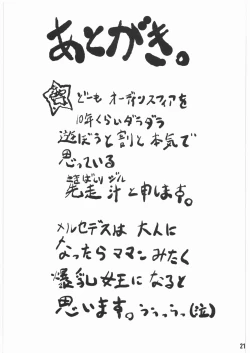 あとがき。
どーも オーディンスフィアを
10年くらいダラダラ
遊ぼうと割と本気で
思っている
さきばしり ジル
先走 汁と申します。
メルセデスは 大人に
なったら ママンみたく
爆乳女王になると
思います。うぅうっ(泣)
21